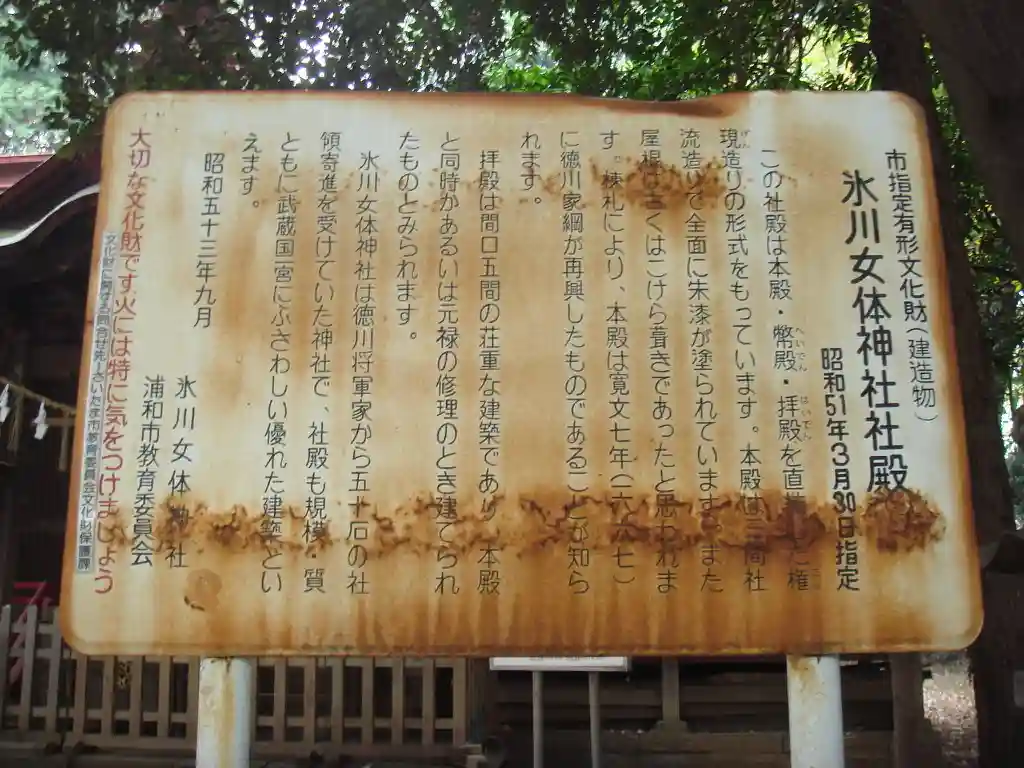 市指定有形文化財(建造物)
氷川女体神社社殿
昭和51年3月30日指定
この社殿は本殿・幣殿・拝殿を直 た権
へいでん はいでん
現造りの形式をもっています。本殿は三間社
げん
流造りで全面に朱漆が塗られています。また
屋根は古くはこけら葺きであったと思われま
す。棟札により、本殿は寛文七年(一六六七)
に徳川家綱が再興したものであることが知ら
れます。
拝殿は間口五間の荘重な建築であり、本殿
と同時かあるいは元禄の修理のとき建てられ
たものとみられます。
氷川女体神社は徳川将軍家から五十石の社
領寄進を受けていた神社で、社殿も規模・質
ともに武蔵国一宮にふさわしい優れた建築とい
えます。
昭和五十三年九月
氷川女体神社
浦和市教育委員会
大切な文化財です。火には特に気をつけましょう
文化財に関する問合せ先-さいたま市教育委員会文化財保護課